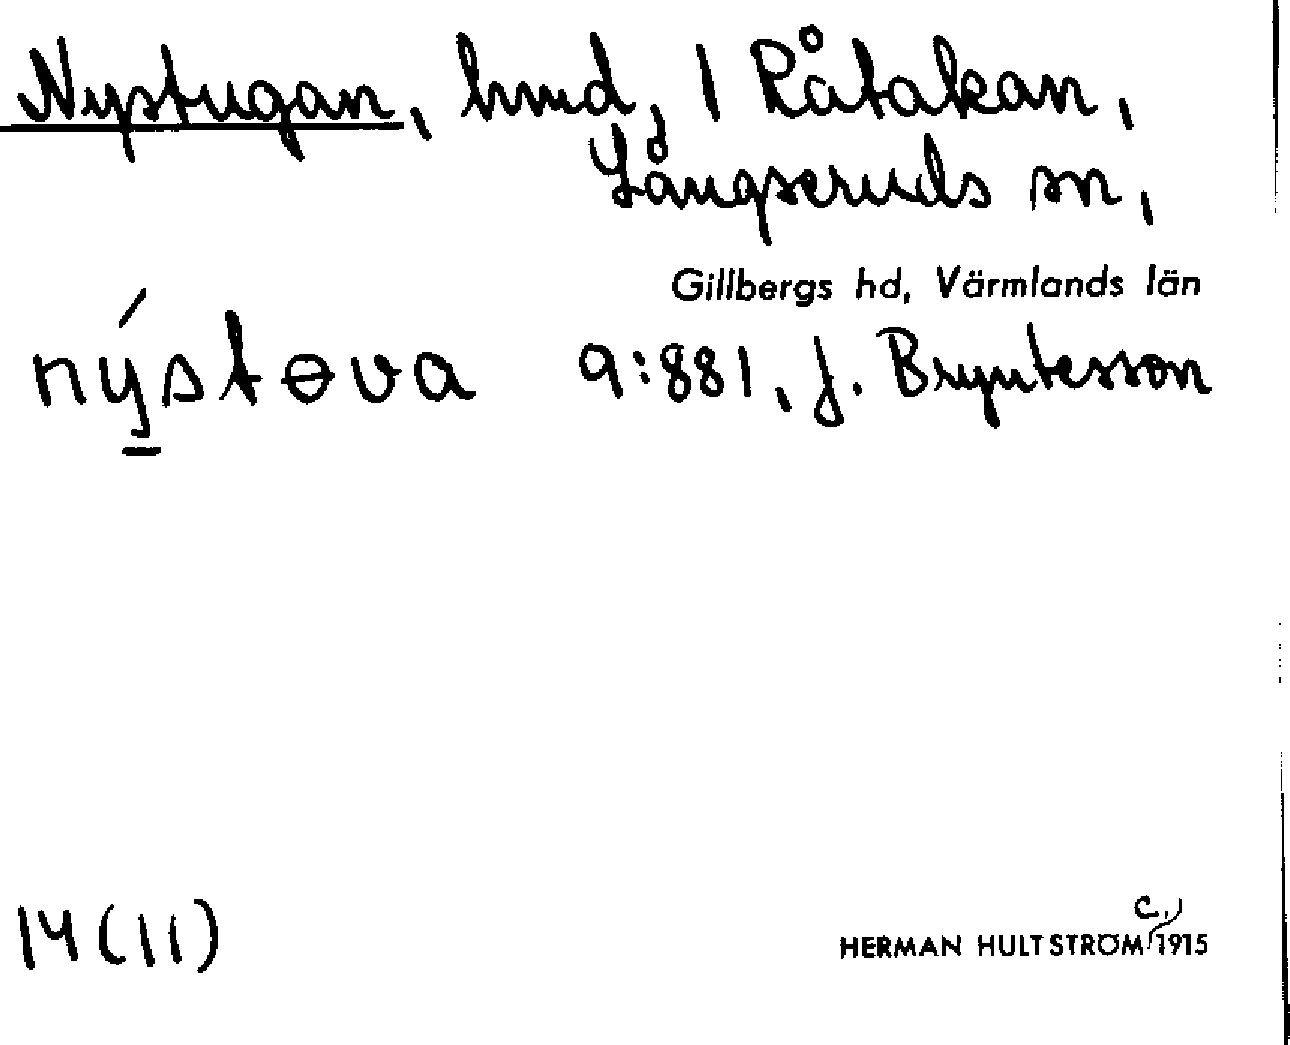 Nystugan, hmd, 1 Råtakan,
Långseruds sn,
Gillbergs hd, Värmlands län
nýstɵva 9:881, J. Bryntesson
14 (11)
c.,
HERMAN HULTSTRÖM 1915